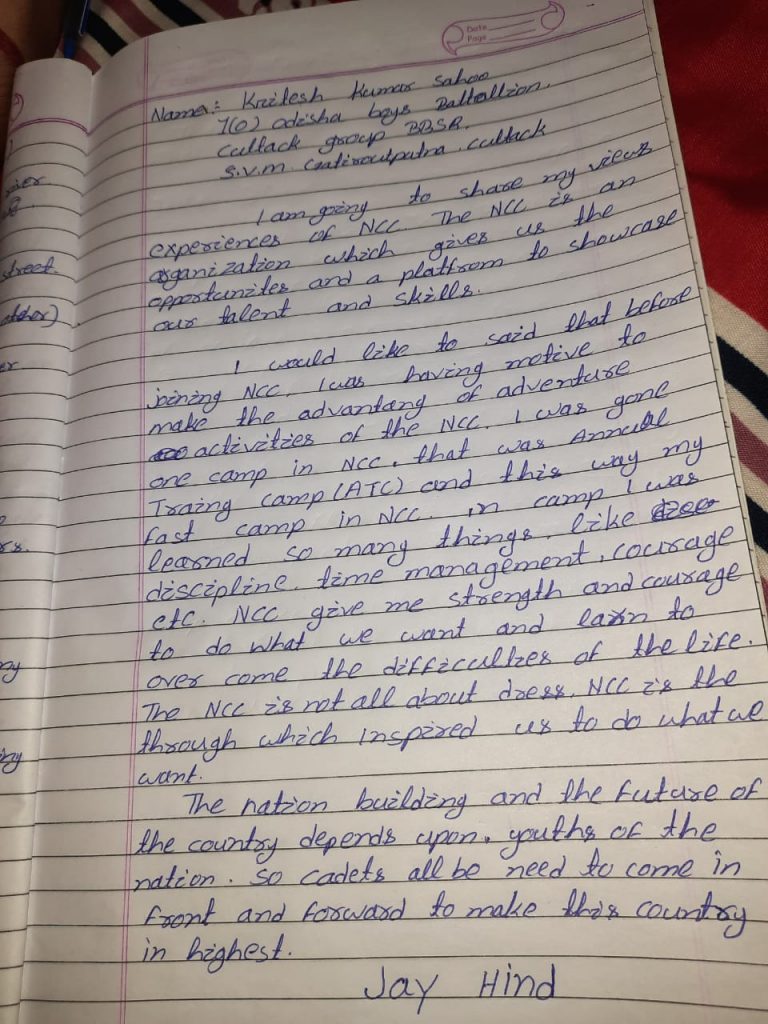 Date
Page
Name: Kritesh Kumar Sahoo
7(O) Odisha boys Battallion.
Cuttack group BBSR.
S.V.M. Cuttack
I am going to share my views
experiences of NCC. The NCC is an
organization which gives us the
opportunites and a platfrom to showcase
our talent and skills.
I would like to said that before
joining NCC, I was having motive to
make the advantang of adventure
activities of the NCC. I was gone
one camp in NCC, that was Annual
Traing camp (ATC) and this way my
fast camp in NCC. in camp I was
learned so many things, like
discipline, time management, courage
etc. NCC give me strength and courage
to do what we want and learn to
over come the difficultes of the life.
The NCC is not all about dress. NCC is the
through which inspired us to do what we
want.
The nation building and the future of
the country depends upon, youths of the
nation. So cadets all be need to come in
front and forward to make this country
in highest.
Jay Hind
street.